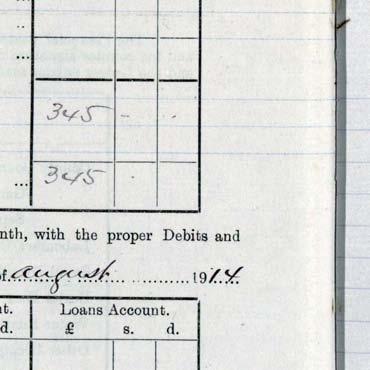 ...
..
...
345 - .
... 345 .
nth, with the proper Debits and
of august 1914
t. Loans Account.
d. £ s. d.